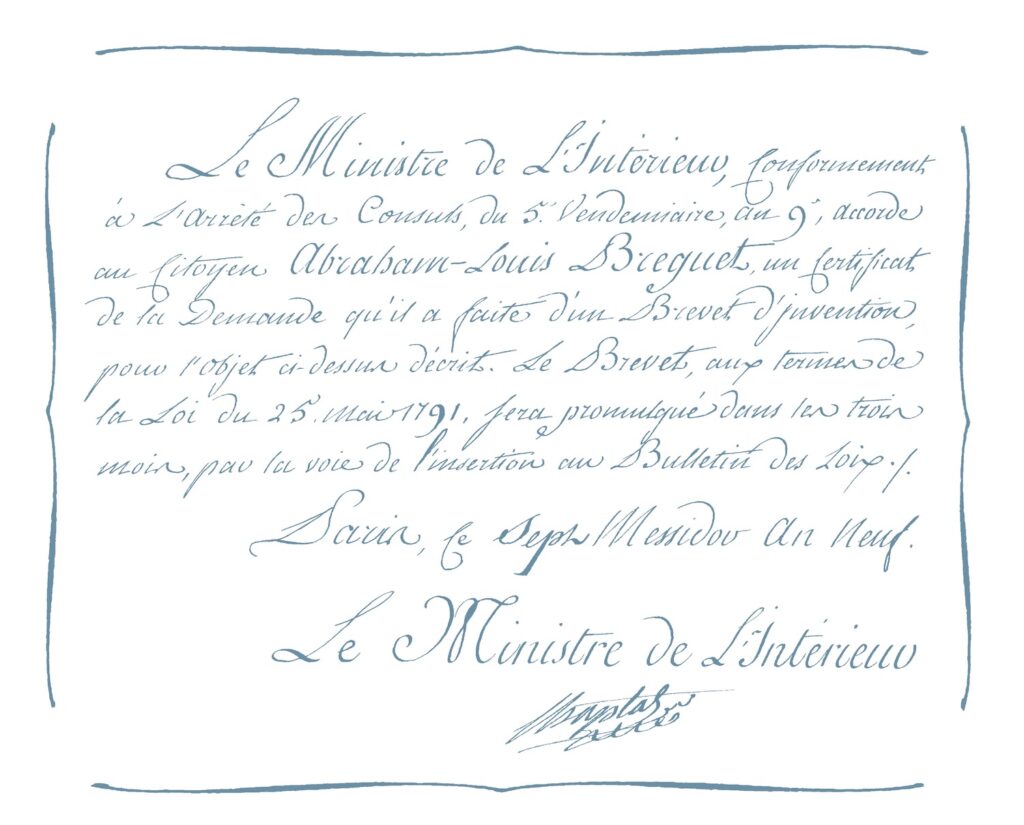 Le Ministre de L'Intérieur, Conformement
à L'Arrêté des Consuls, du 5. Vendemiaire, an 9e, accorde
au Citoyen Abraham-Louis Breguet, un Certificat
de la Demande qu'il a faite d'un Brevet d'invention,
pour l'objet ci-dessus décrit. Le Brevet, aux termes de
la Loi du 25. Mai 1791. sera promulgué dans les trois
mois, par la voie de l'insertion au Bulletin des Loix ./.
Paris, Ce Sept Messidor An Neuf.
Le Ministre de L'Intérieur
Chaptal